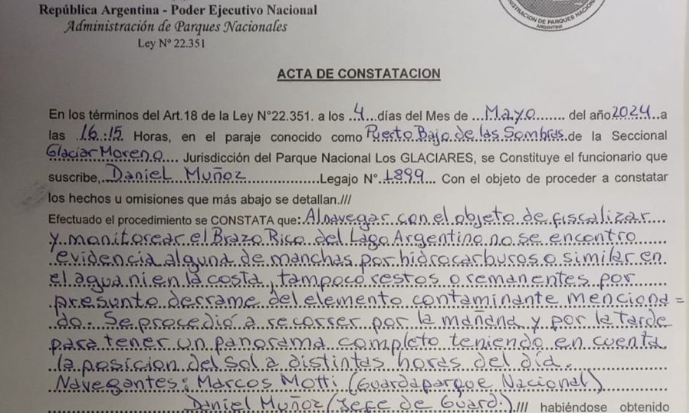 República Argentina - Poder Ejecutivo Nacional
Administración de Parques Nacionales
Ley Nº 22.351
ACTA DE CONSTATACION
En los términos del Art.18 de la Ley N°22.351. a los 4 días del Mes de Mayo del año 2024 a
las 16:15 Horas, en el paraje conocido como Puerto Bajo de las Sombras de la Seccional
Glaciar Moreno Jurisdicción del Parque Nacional Los GLACIARES, se Constituye el funcionario que
suscribe, Daniel Muñoz Legajo N° 1899 Con el objeto de proceder a constatar
los hechos u omisiones que más abajo se detallan.///
Efectuado el procedimiento se CONSTATA que: Al navegar con el objeto de fiscalizar
y monitorear el Brazo Rico del Lago Argentino no se encontró
evidencia alguna de manchas por hidrocarburos o similar en
el agua ni en la costa, tampoco restos o remanentes por
presunto derrame del elemento contaminante menciona=
do. Se procedió a recorrer por la mañana y por la tarde
para tener un panorama completo teniendo en cuenta
la posicion del sol a distintas horas del día.
Navegantes: Marcos Motti (Guardaparque Nacional)
Daniel Muñoz (Jefe de Guard.) /// habiéndose obtenido